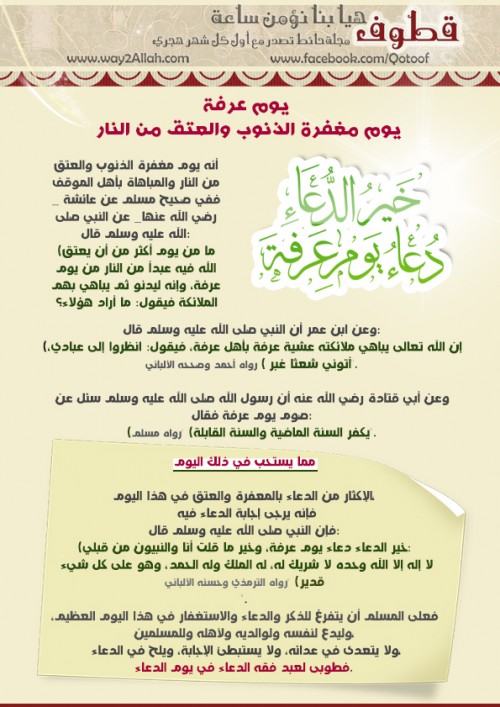 قطوف هيا بنا نؤمن ساعة
مجلة حائط تصدر مع أول كل شهر هجري
www.way2Allah.com www.facebook.com/Qotoof
يوم عرفة
يوم مغفرة الذنوب والعتق من النار
خَيرُ الدُّعَاءِ
دُعَاءُ يَومِ عَرفَةَ
أنه يوم مغفرة الذنوب والعتق
من النار والمباهاة بأهل الموقف
ففي صحيح مسلم عن عائشة _
رضي الله عنها_ عن النبي صلى
الله عليه وسلم قال:
(ما من يوم أكثر من أن يعتق
الله فيه عبداً من النار من يوم
عرفة، وإنه ليدنو ثم يباهي بهم
الملائكة فيقول: ما أراد هؤلاء؟
وعن ابن عمر أن النبي صلى الله عليه وسلم قال:
(إن الله تعالى يباهي ملائكته عشية عرفة بأهل عرفة، فيقول: انظروا إلى عبادي،
أتوني شعثا غبر ) رواه أحمد وصححه الألباني .
وعن أبي قتادة رضي الله عنه أن رسول الله صلى الله عليه وسلم سئل عن
صوم يوم عرفة فقال:
(يكفر السنة الماضية والسنة القابلة" رواه مسلم) .
مما يستحب في ذلك اليوم
الإكثار من الدعاء بالمغفرة والعتق في هذا اليوم.
فإنه يرجى إجابة الدعاء فيه
فإن النبي صلى الله عليه وسلم قال:
(خير الدعاء دعاء يوم عرفة، وخير ما قلت أنا والنبيون من قبلي:
لا إله إلا الله وحده لا شريك له، له الملك وله الحمد، وهو على كل شيء
قدير) "رواه الترمذي وحسنه الألباني
".
فعلى المسلم أن يتفرغ للذكر والدعاء والاستغفار في هذا اليوم العظيم،
وليدع لنفسه ولوالديه ولأهله وللمسلمين.
ولا يتعدى في عدائه، ولا يستبطئ الإجابة، ويلح في الدعاء.
فطوبى لعبد فقه الدعاء في يوم الدعاء.